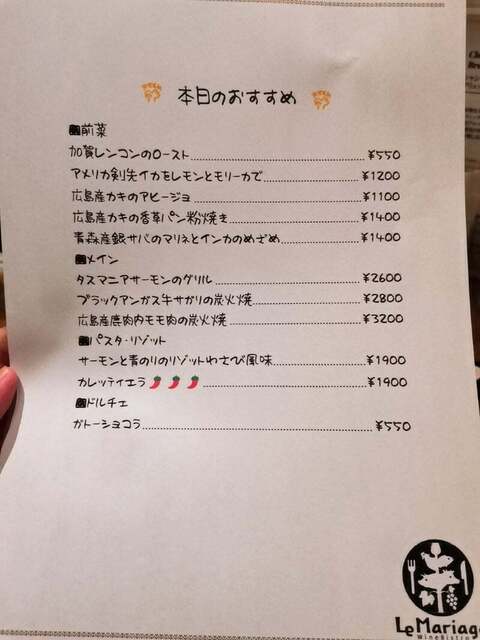 本日のおすすめ
前菜
加賀レンコンのロースト ¥550
アメリカ剣先イカをレモンとモリーカで ¥1200
広島産カキのアヒージョ ¥1100
広島産カキの香草パン粉焼き ¥1400
青森産銀サバのマリネとインカのめざめ ¥1400
メイン
タスマニアサーモンのグリル ¥2600
ブラックアンガス牛サガリの炭火焼 ¥2800
広島産鹿肉内モモ肉の炭火焼 ¥3200
パスタ・リゾット
サーモンと青のりのリゾットわさび風味 ¥1900
カレッティエラ ¥1900
ドルチェ
ガトーショコラ ¥550
Le Mariage
WineBistro